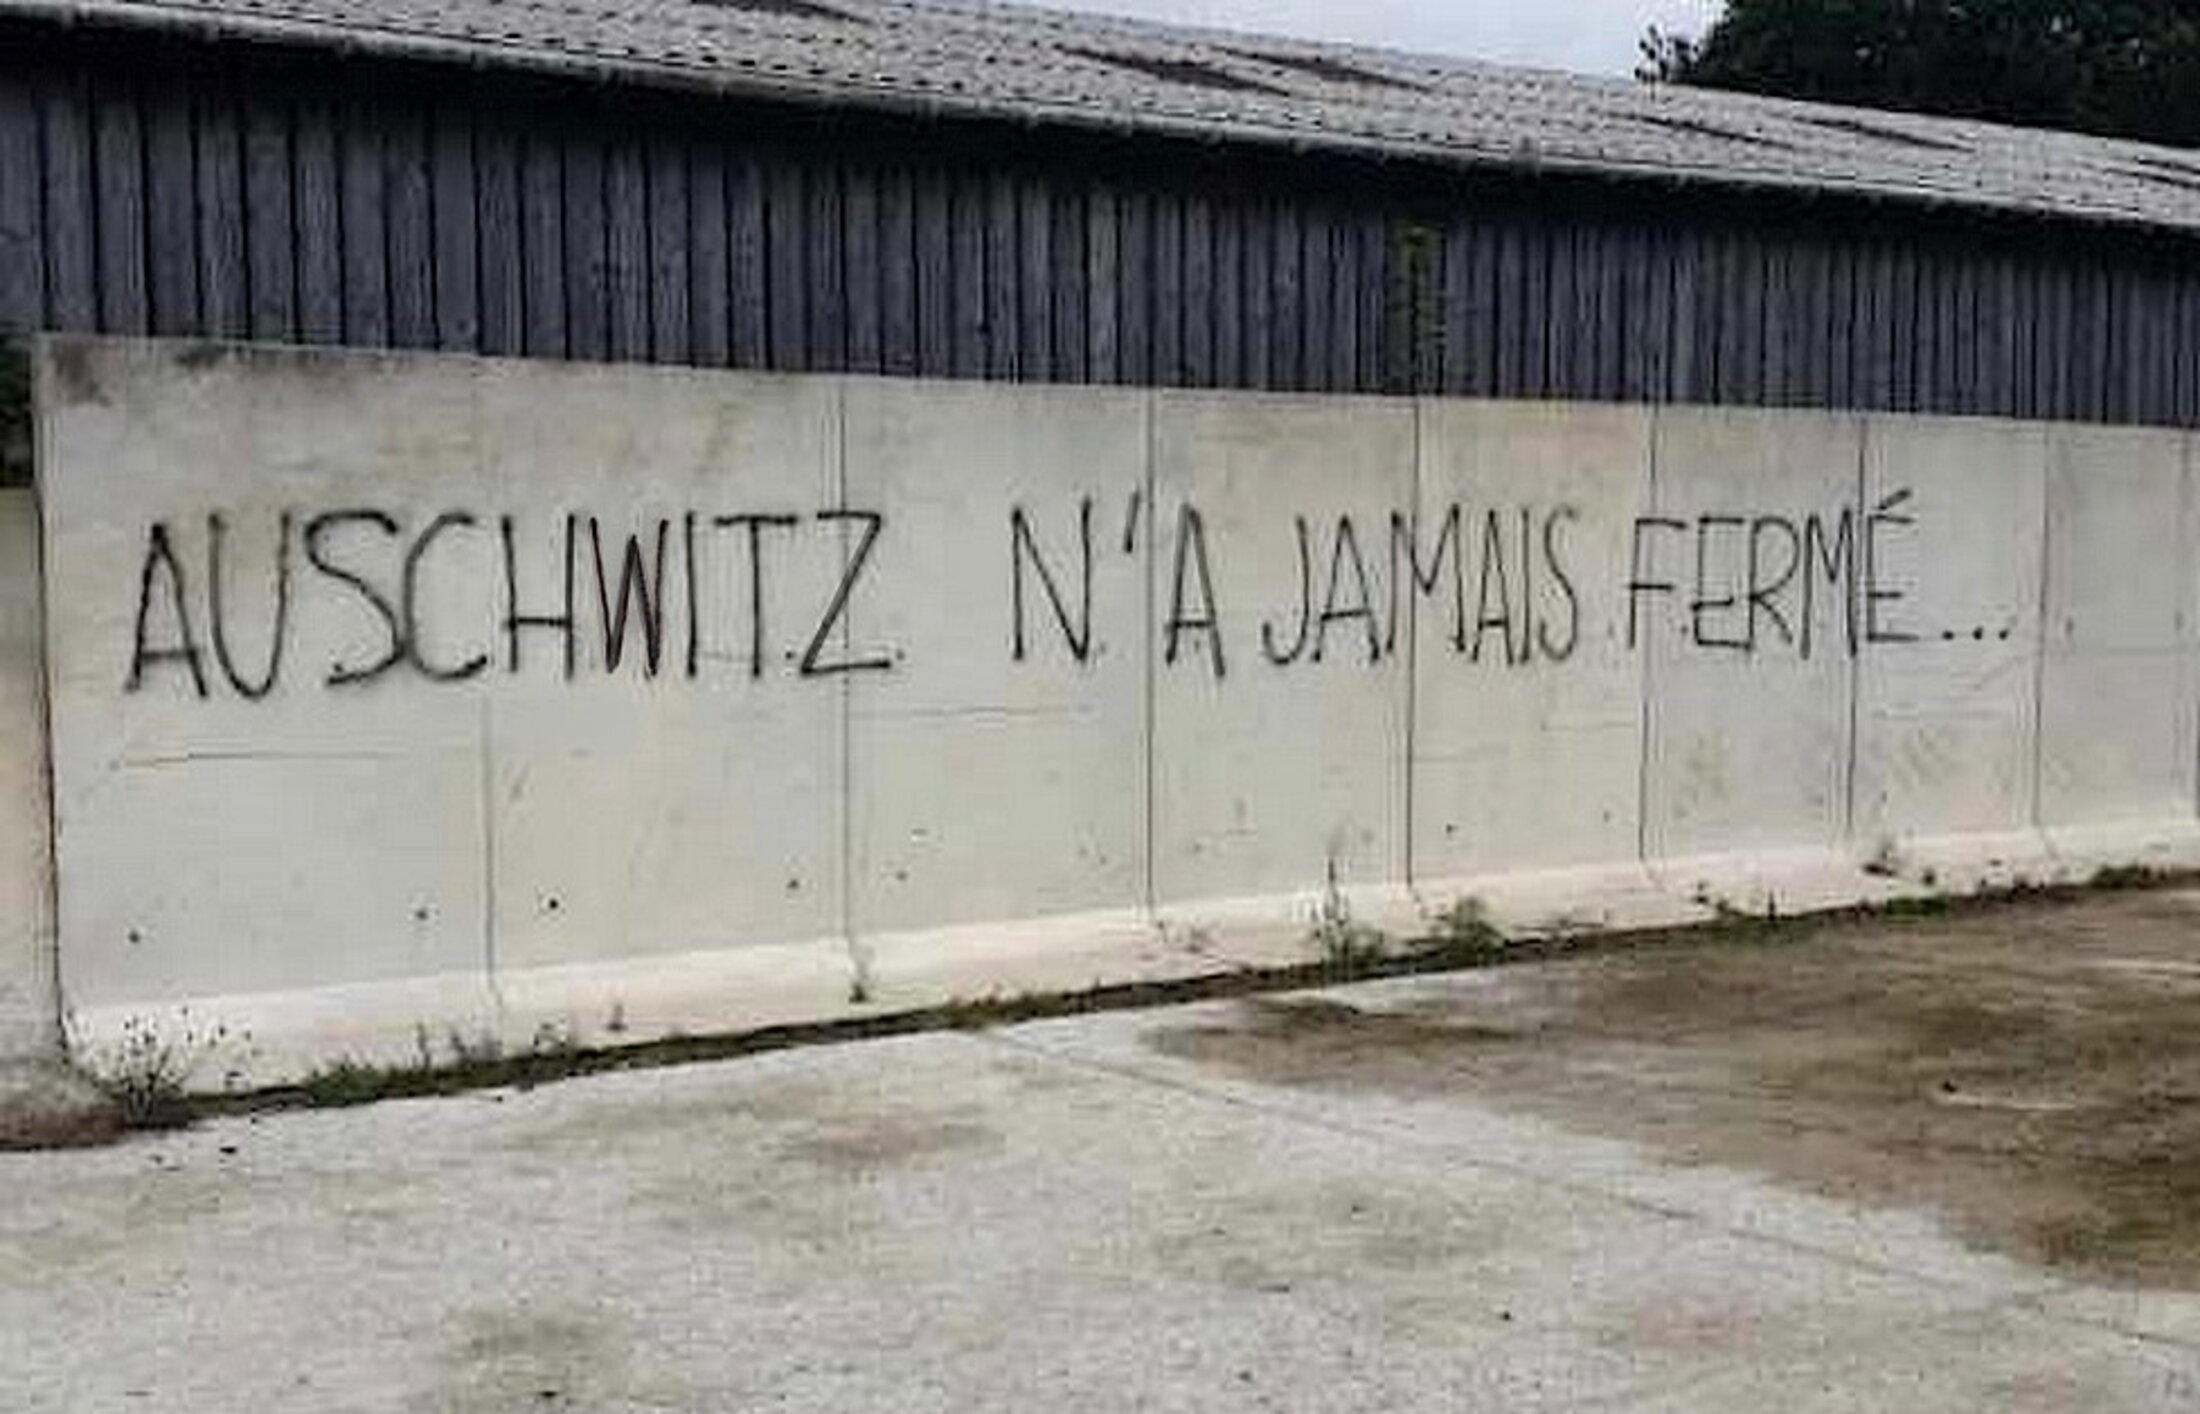 AUSCHWITZ N'A JAMAIS FERMÉ...